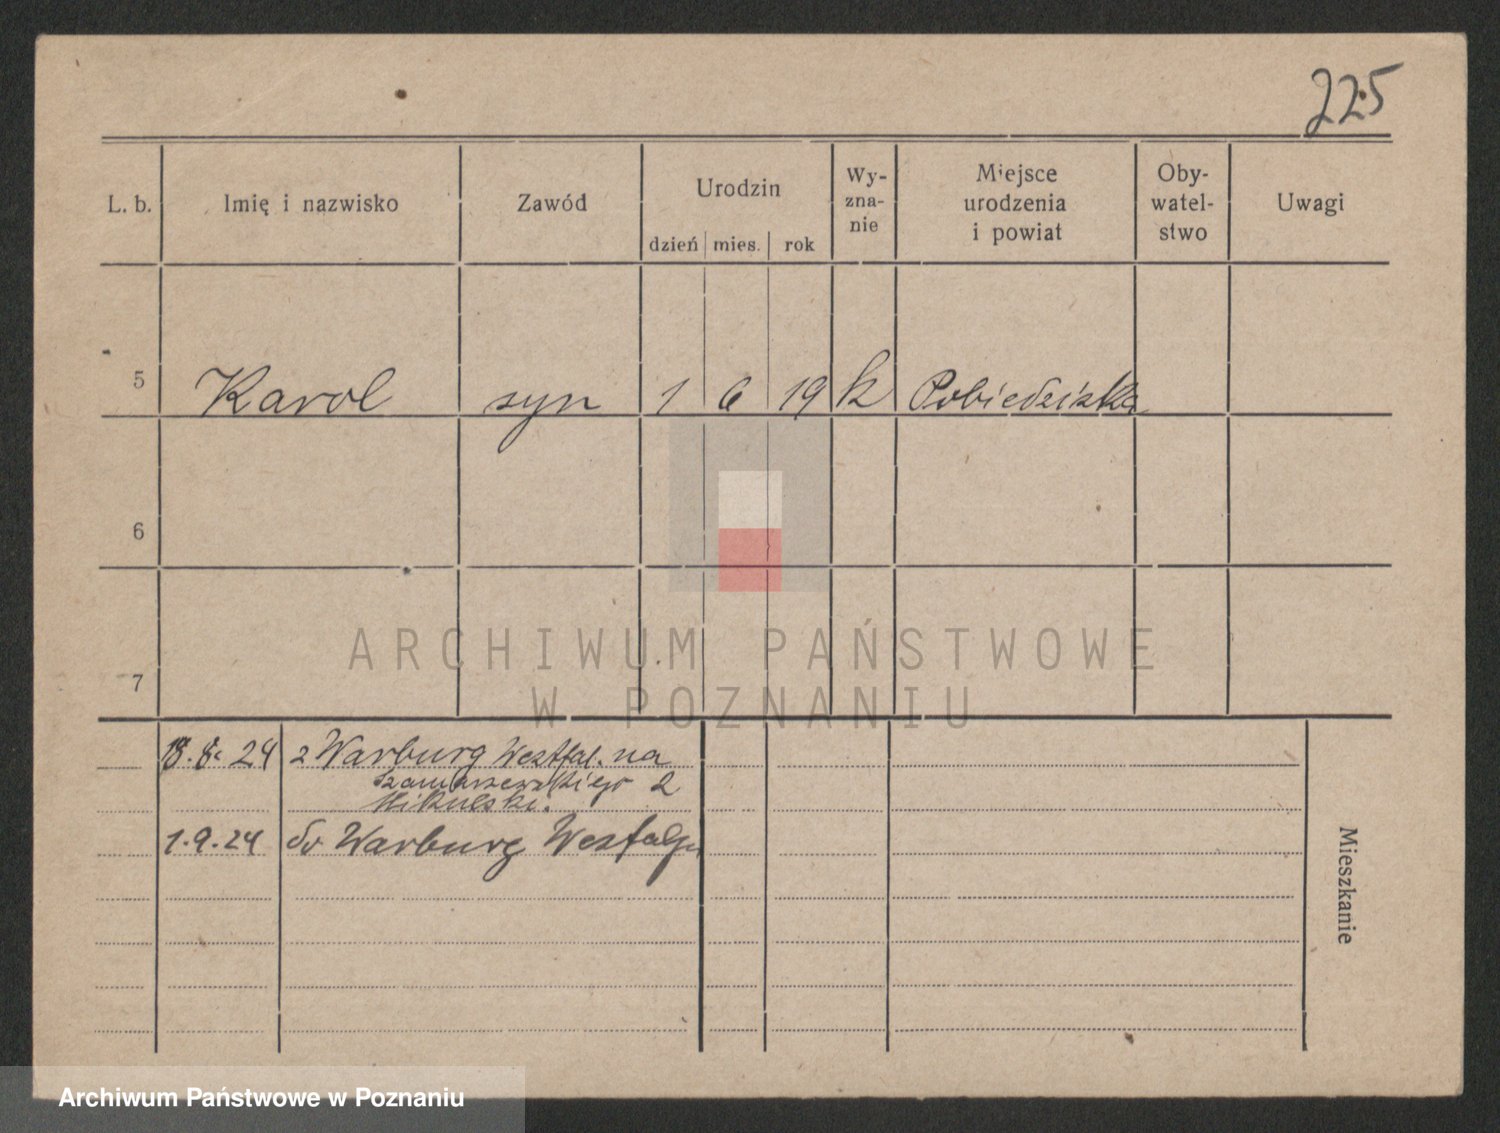 225
L. b. Imię i nazwisko Zawód Urodzin dzień mies. rok Wy-zna-nie Miejsce urodzenia i powiat Oby-watel-stwo Uwagi
5 Karol syn 1 6 19 k Pobiedziska
6
7
18.8. 24 z Warburg Westfal. na
Szamarzewskiego 2
Mikulski.
1.9.24 do Warburg Westfalja
Mieszkanie
ARCHIWUM PAŃSTWOWE
W POZNANIU
Archiwum Państwowe w Poznaniu